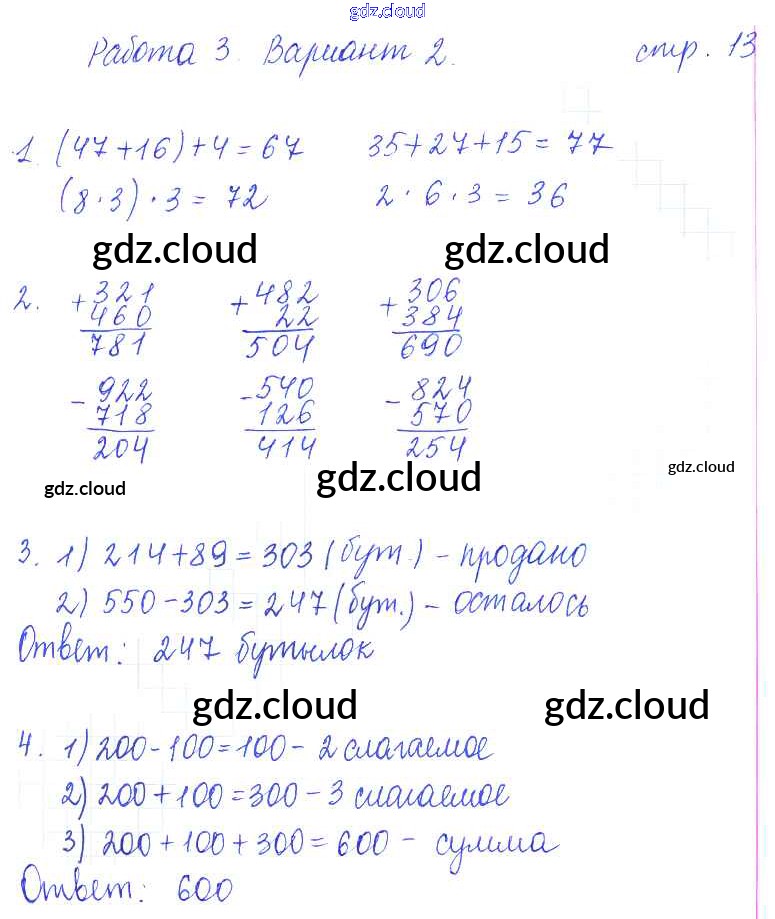 gdz.cloud
Работа 3. Вариант 2. стр. 13
1. (47+16)+4=67 35+27+15=77
(8·3)·3=72 2·6·3=36
gdz.cloud gdz.cloud
2. +321 +482 +306
460 22 384
781 504 690
-922 -540 -824
718 126 570
204 414 254
gdz.cloud gdz.cloud gdz.cloud
3. 1) 214+89=303 (бут.) - продано
2) 550-303=247 (бут.) - осталось
Ответ: 247 бутылок
gdz.cloud gdz.cloud
4. 1) 200-100=100 - 2 слагаемое
2) 200+100=300 - 3 слагаемое
3) 200+100+300=600 - сумма
Ответ: 600